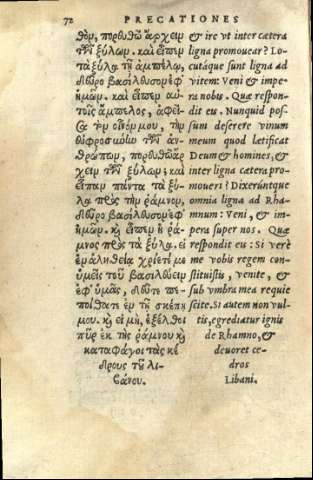 72 PRECATIONES
θῶν, πορευθῶ ἄρχειν
τῶν ξύλων. καὶ εἶπεν
τὰ ξύλα τῇ ἀμπέλῳ,
δεῦρο βασίλευσον ἐφ'
ἡμῶν. καὶ εἶπεν αὐ-
τοῖς ἄμπελος, ἀφεῖ-
σα τὸν οἶνόν μου, τὴν
εὐφροσύνην τῶν ἀν-
θρώπων, πορευθῶ ἄρ-
χειν τῶν ξύλων; καὶ
εἶπαν πάντα τὰ ξύ-
λα πρὸς τὴν ῥάμνον,
δεῦρο βασίλευσον ἐφ'
ἡμῶν. καὶ εἶπεν ἡ ρά-
μνος πρὸς τὰ ξύλα. εἰ
ἐν ἀληθείᾳ χρίετέ με
ὑμεῖς τοῦ βασιλεύειν
ἐφ' ὑμᾶς, δεῦτε πε-
ποίθατε ἐν τῇ σκέπῃ
μου. καὶ εἰ μὴ, ἐξέλθοι
πῦρ ἐκ τῆς ῥάμνου καὶ
καταφάγοι τὰς κέ
δρους τοῦ λι-
βάνου.
& ire vt inter cætera
ligna promouear? Lo-
cutáque sunt ligna ad
vitem: Veni & impe-
ra nobis. Quæ respon-
dit eis. Nunquid pos-
sum deserere vinum
meum quod letificat
Deum & homines, &
inter ligna cætera pro-
moueri? Dixerúntque
omnia ligna ad Rha-
mnum: Veni, & im-
pera super nos. Quæ
respondit eis: Si verè
me vobis regem con-
stituistis, venite, &
sub vmbra mea requie
scite. Si autem non vul-
tis, egrediatur ignis
de Rhamno, &
deuoret ce-
dros
Libani.